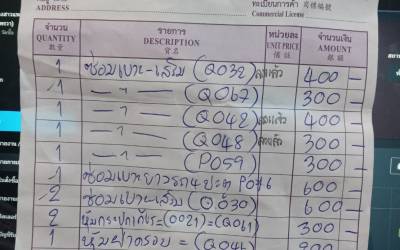 ADDRESS
ทะเบียนการค้า
Commercial License
จำนวน QUANTITY 數量 รายการ DESCRIPTION 貨名 หน่วยละ UNIT PRICE 價銀 จำนวนเงิน AMOUNT 銀額
1 ซ่อมเบาะ-เสริม (Q032) 400 -
1 — ๆ — (Q062) 300 -
1 — ๆ — (Q042) 400 -
1 — ๆ — (Q048) 300 -
1 — ๆ — (P059) 300 -
1 ซ่อมเบาะยาวรถ4ประตู 600 -
2 ซ่อมเบาะ-เสริม (Q030) 600 -
2 หุ้มกระปุกเกียร์=(0021)=(Q061) 300 -
1 หุ้ม = (Q046)